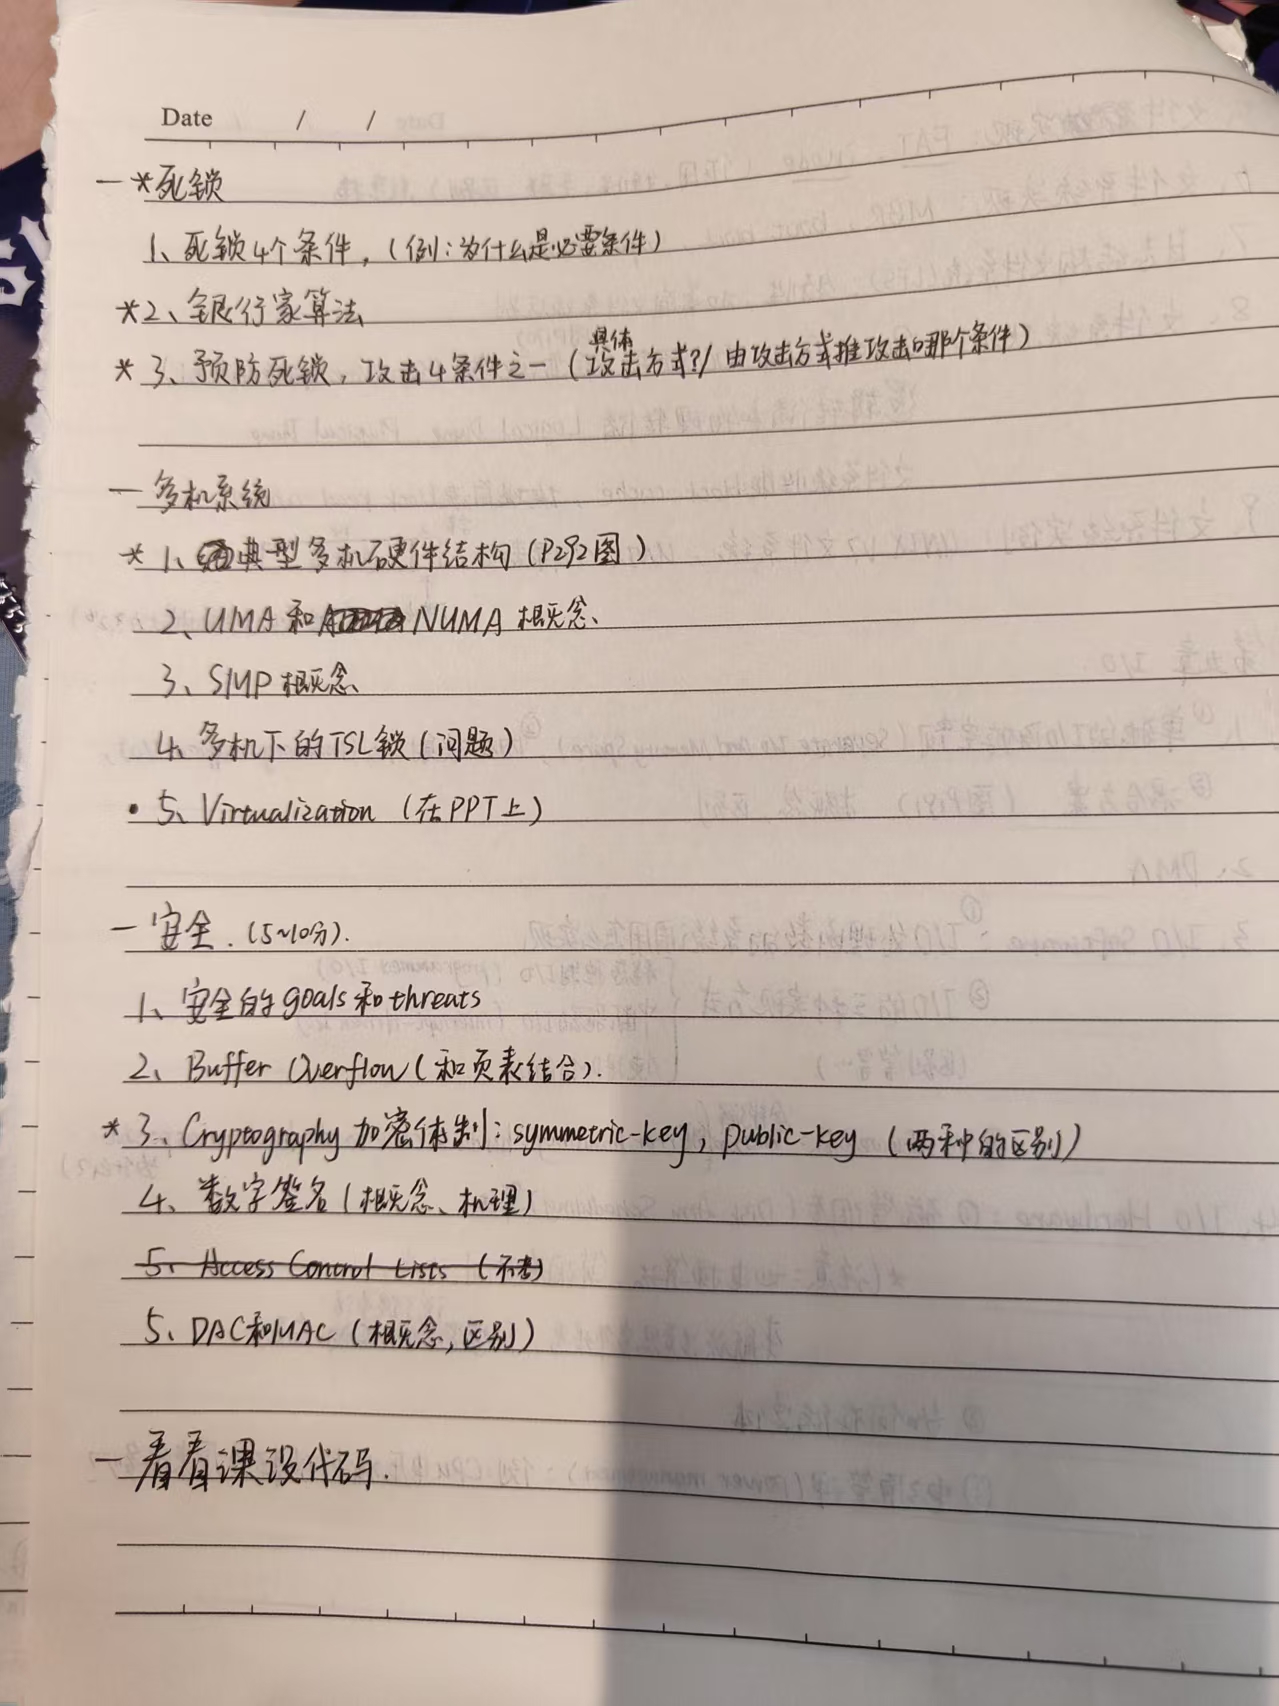 Date / /
一 *死锁
1、死锁4个条件，(例：为什么是必要条件)
*2、银行家算法
*3、预防死锁，攻击4条件之一 (具体攻击方式?/ 由攻击方式推攻击哪个条件)
一 多机系统
*1、典型多机硬件结构 (P292图)
2、UMA和NUMA 概念、
3、SMP 概念、
4、多机下的TSL锁 (问题)
• 5、Virtualization (在PPT上)
一 安全. (5~10分).
1、安全的goals和threats
2、Buffer Overflow (和页表结合).
*3、Cryptography 加密体制: symmetric-key, public-key (两种的区别)
4、数字签名 (概念、机理)
5、Access Control Lists (不考)
5、DAC和MAC (概念, 区别)
一 看看课设代码.